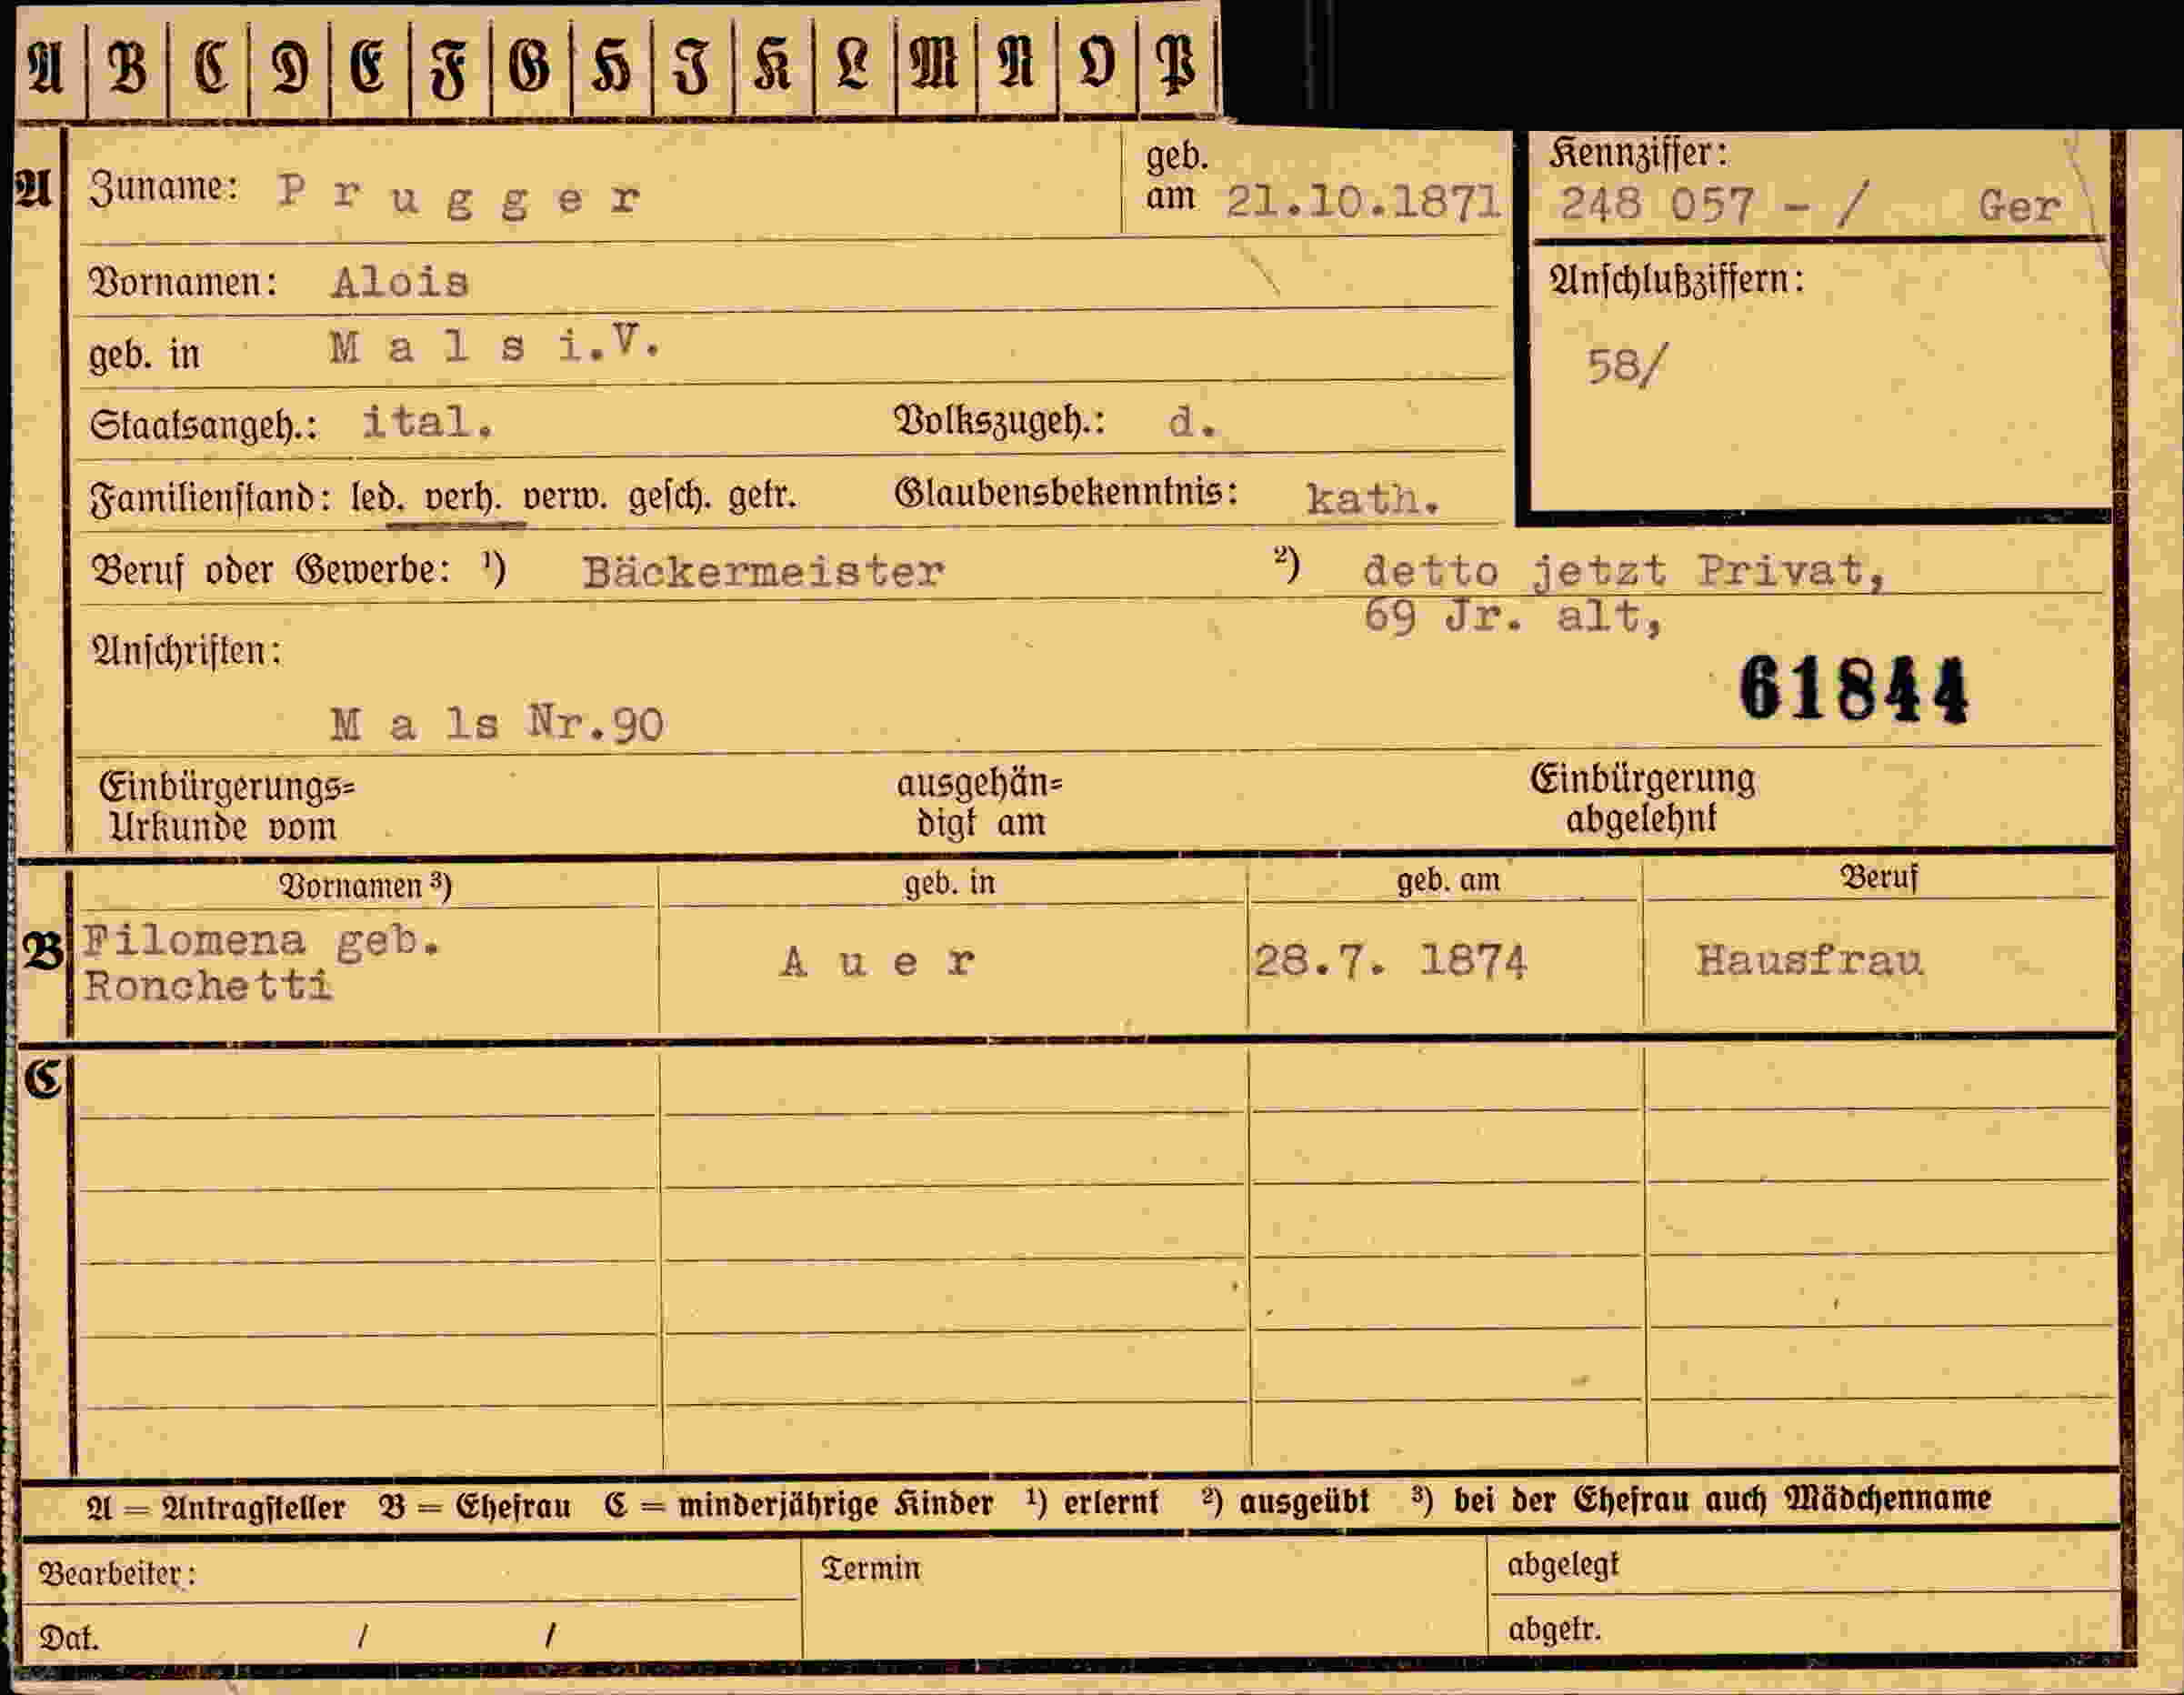 A B C D E F G H I K L M N O P
A Zuname: Prugger geb. am 21.10.1871 Kennziffer: 248 057 - / Ger
Vornamen: Alois Anschlußziffern:
geb. in Mals i.V. 58/
Staatsangeh.: ital. Volkszugeh.: d.
Familienstand: led. verh. verw. gesch. getr. Glaubensbekenntnis: kath.
Beruf oder Gewerbe: ¹) Bäckermeister ²) detto jetzt Privat,
69 Jr. alt,
Anschriften:
61844
Mals Nr.90
Einbürgerungs= ausgehän= Einbürgerung
Urkunde vom digt am abgelehnt
Vornamen ³) geb. in geb. am Beruf
B Filomena geb. Auer 28.7. 1874 Hausfrau
Ronchetti
C
A = Antragsteller B = Ehefrau C = minderjährige Kinder ¹) erlernt ²) ausgeübt ³) bei der Ehefrau auch Mädchenname
Bearbeiter: Termin abgelegt
Dat. / / abgetr.